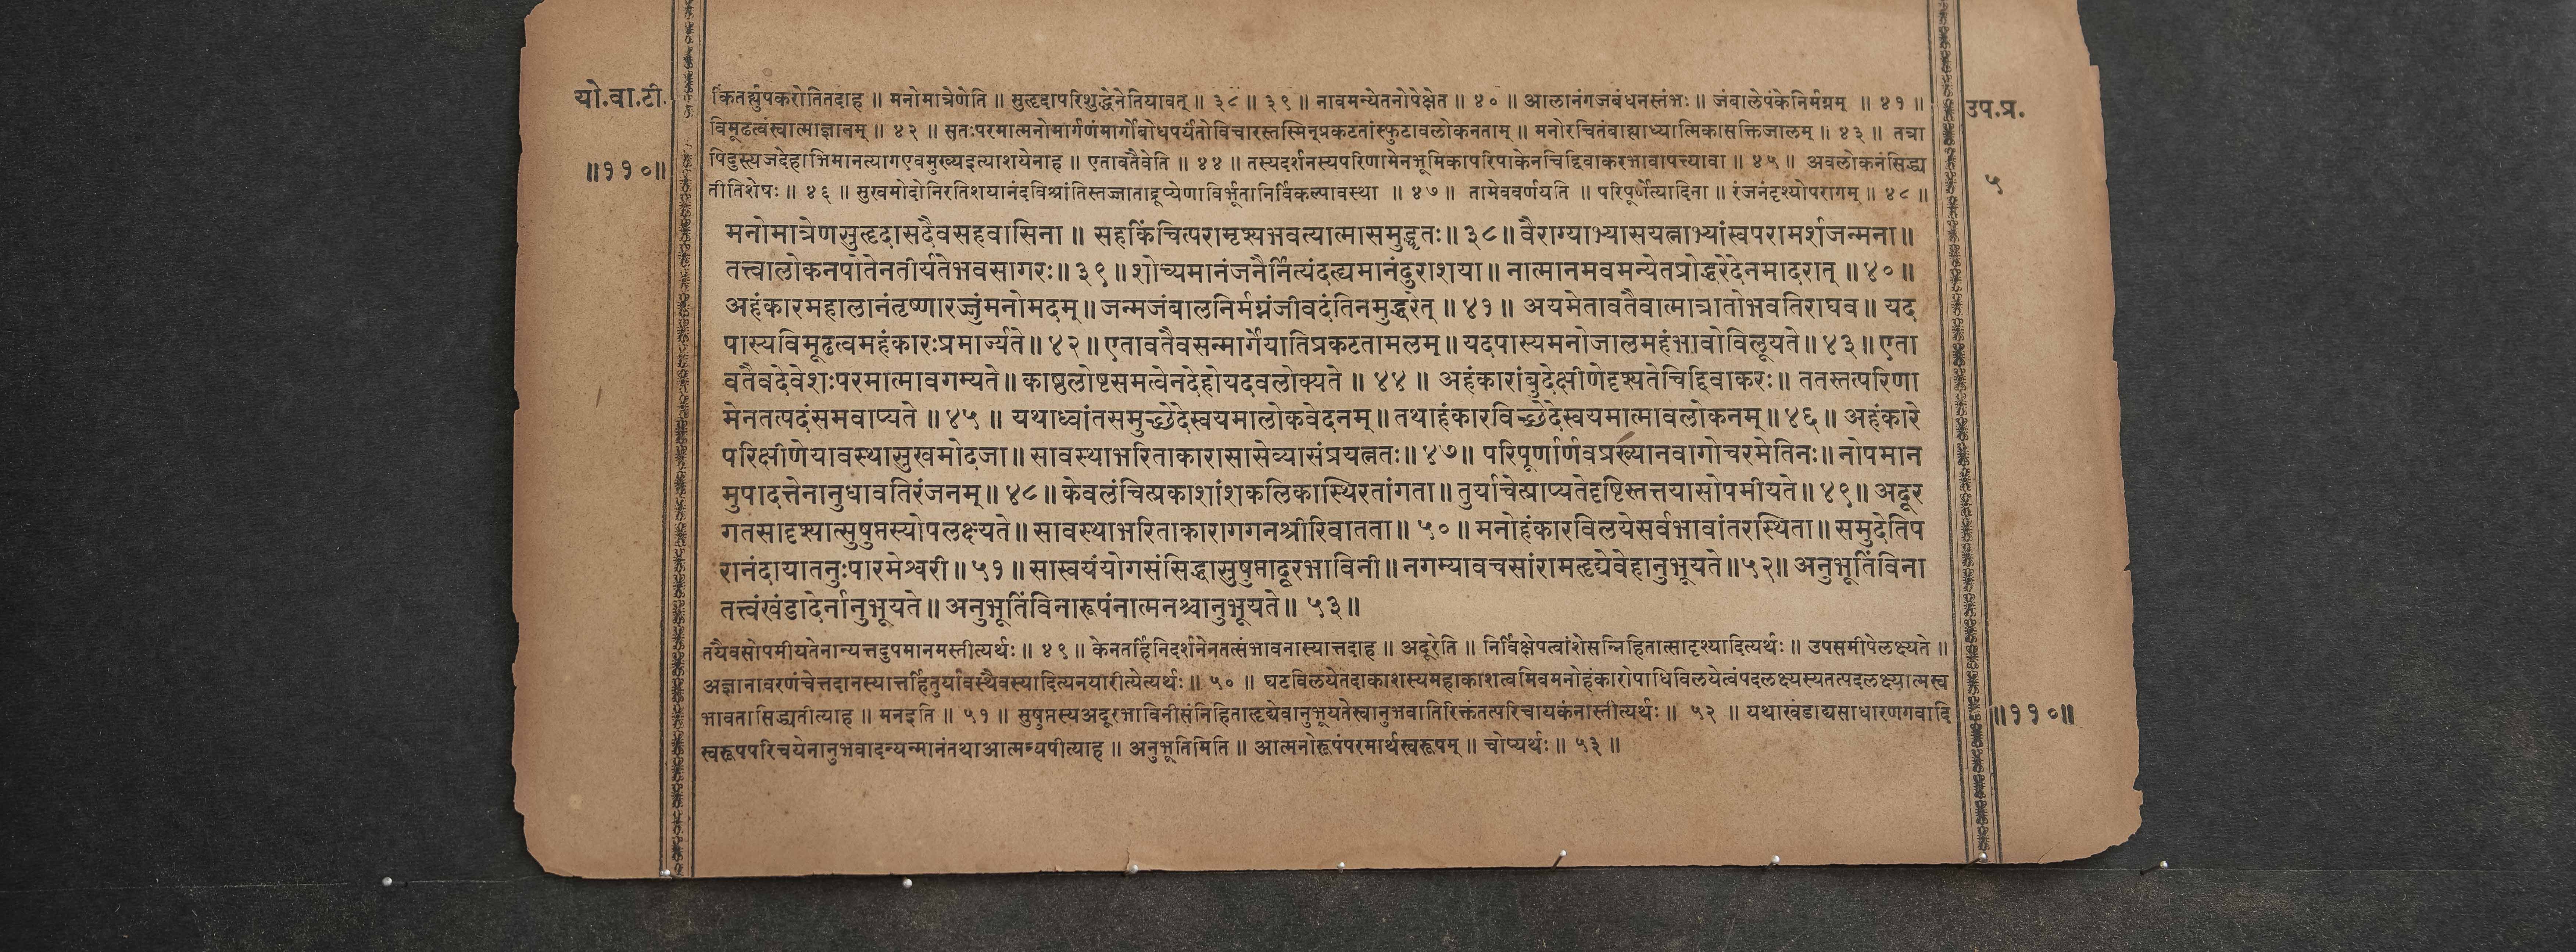 यो.वा.टी.
॥११०॥
किंतर्ह्युपकरोतितदाह ॥ मनोमात्रेणेति ॥ सुहृदापरिशुद्धेनेतियावत् ॥ ३८ ॥ ३९ ॥ नावमन्येतनोपेक्षेत ॥ ४० ॥ आलानंगजबंधनस्तंभः ॥ जंबालेपंकेनिर्मग्नम् ॥ ४१ ॥
विमूढत्वंस्वात्माज्ञानम् ॥ ४२ ॥ सतःपरमात्मनोमार्गणंमार्गोबोधपर्यंतोविचारस्तस्मिन्प्रकटतांस्फुटावलोकनताम् ॥ मनोरचितंबाह्याध्यात्मिकासक्तिजालम् ॥ ४३ ॥ तत्रा
पिदुस्त्यजदेहाभिमानत्यागएवमुख्यइत्याशयेनाह ॥ एतावतैवेति ॥ ४४ ॥ तस्यदर्शनस्यपरिणामेनभूमिकापरिपाकेनचिद्दिवाकरभावापत्त्यावा ॥ ४५ ॥ अवलोकनंसिद्ध्य
तीतिशेषः ॥ ४६ ॥ सुखमोदोनिरतिशयानंदविश्रांतिस्तज्जाताद्रूप्येणाविर्भूतानिर्विकल्पावस्था ॥ ४७ ॥ तामेववर्णयति ॥ परिपूर्णेत्यादिना ॥ रंजनंदृश्योपरागम् ॥ ४८ ॥
उप.प्र.
५
मनोमात्रेणसुहृदासदैवसहवासिना ॥ सहकिंचित्परामृश्यभवत्यात्मासमुद्धृतः ॥ ३८ ॥ वैराग्याभ्यासयत्नाभ्यांस्वपरामर्शजन्मना ॥
तत्त्वालोकनपोतेनतीर्यतेभवसागरः ॥ ३९ ॥ शोच्यमानंजनैर्नित्यंदह्यमानंदुराशया ॥ नात्मानमवमन्येतप्रोद्धरेदेनमादरात् ॥ ४० ॥
अहंकारमहालानंतृष्णारज्जुंमनोमदम् ॥ जन्मजंबालनिर्मग्नंजीवदंतिनमुद्धरेत् ॥ ४१ ॥ अयमेतावतैवात्मात्रातोभवतिराघव ॥ यद
पास्यविमूढत्वमहंकारःप्रमार्ज्यते ॥ ४२ ॥ एतावतैवसन्मार्गेयातिप्रकटतामलम् ॥ यदपास्यमनोजालमहंभावोविलूयते ॥ ४३ ॥ एता
वतैवदेवेशःपरमात्मावगम्यते ॥ काष्ठलोष्टसमत्वेनदेहोयदवलोक्यते ॥ ४४ ॥ अहंकारांबुदेक्षीणेदृश्यतेचिद्दिवाकरः ॥ ततस्तत्परिणा
मेनतत्पदंसमवाप्यते ॥ ४५ ॥ यथाध्वांतसमुच्छेदेस्वयमालोकवेदनम् ॥ तथाहंकारविच्छेदेस्वयमात्मावलोकनम् ॥ ४६ ॥ अहंकारे
परिक्षीणेयावस्थासुखमोदजा ॥ सावस्थाभरिताकारासासेव्यासंप्रयत्नतः ॥ ४७ ॥ परिपूर्णार्णवप्रख्यानवाग्गोचरमेतिनः ॥ नोपमान
मुपादत्तेनानुधावतिरंजनम् ॥ ४८ ॥ केवलंचित्प्रकाशांशकलिकास्थिरतांगता ॥ तुर्याचेत्प्राप्यतेदृष्टिस्तत्तयासोपमीयते ॥ ४९ ॥ अदूर
गतसादृश्यात्सुषुप्तस्योपलक्ष्यते ॥ सावस्थाभरिताकारागगनश्रीरिवातता ॥ ५० ॥ मनोहंकारविलयेसर्वभावांतरस्थिता ॥ समुदेतिप
रानंदायातनुःपारमेश्वरी ॥ ५१ ॥ सास्वयंयोगसंसिद्धासुषुप्तादूरभाविनी ॥ नगम्यावचसांरामहृद्येवेहानुभूयते ॥ ५२ ॥ अनुभूतिंविना
तत्त्वंखंडादेर्नानुभूयते ॥ अनुभूतिंविनारूपंनात्मनश्चानुभूयते ॥ ५३ ॥
तयैवसोपमीयतेनान्यत्तदुपमानमस्तीत्यर्थः ॥ ४९ ॥ केनतर्हिनिदर्शनेनतत्संभावनास्यात्तदाह ॥ अदूरेति ॥ निर्विक्षेपत्वांशेसन्निहितात्सादृश्यादित्यर्थः ॥ उपसमीपेलक्ष्यते ॥
अज्ञानावरणंचेत्तदानस्यात्तर्हितुर्यावस्थैवस्यादित्यनयारीत्येत्यर्थः ॥ ५० ॥ घटविलयेतदाकाशस्यमहाकाशत्वमिवमनोहंकारोपाधिविलयेत्वंपदलक्ष्यस्यतत्पदलक्ष्यात्मस्व
भावतासिद्ध्यतीत्याह ॥ मनइति ॥ ५१ ॥ सुषुप्तस्यअदूरभाविनीसंनिहिताहृद्येवानुभूयतेस्वानुभवातिरिक्तंतत्परिचायकंनास्तीत्यर्थः ॥ ५२ ॥ यथाखंडाद्यसाधारणगवादि
स्वरूपपरिचयेनानुभवादन्यन्मानंतथाआत्मन्यपीत्याह ॥ अनुभूतिमिति ॥ आत्मनोरूपंपरमार्थस्वरूपम् ॥ चोप्यर्थः ॥ ५३ ॥
॥११०॥